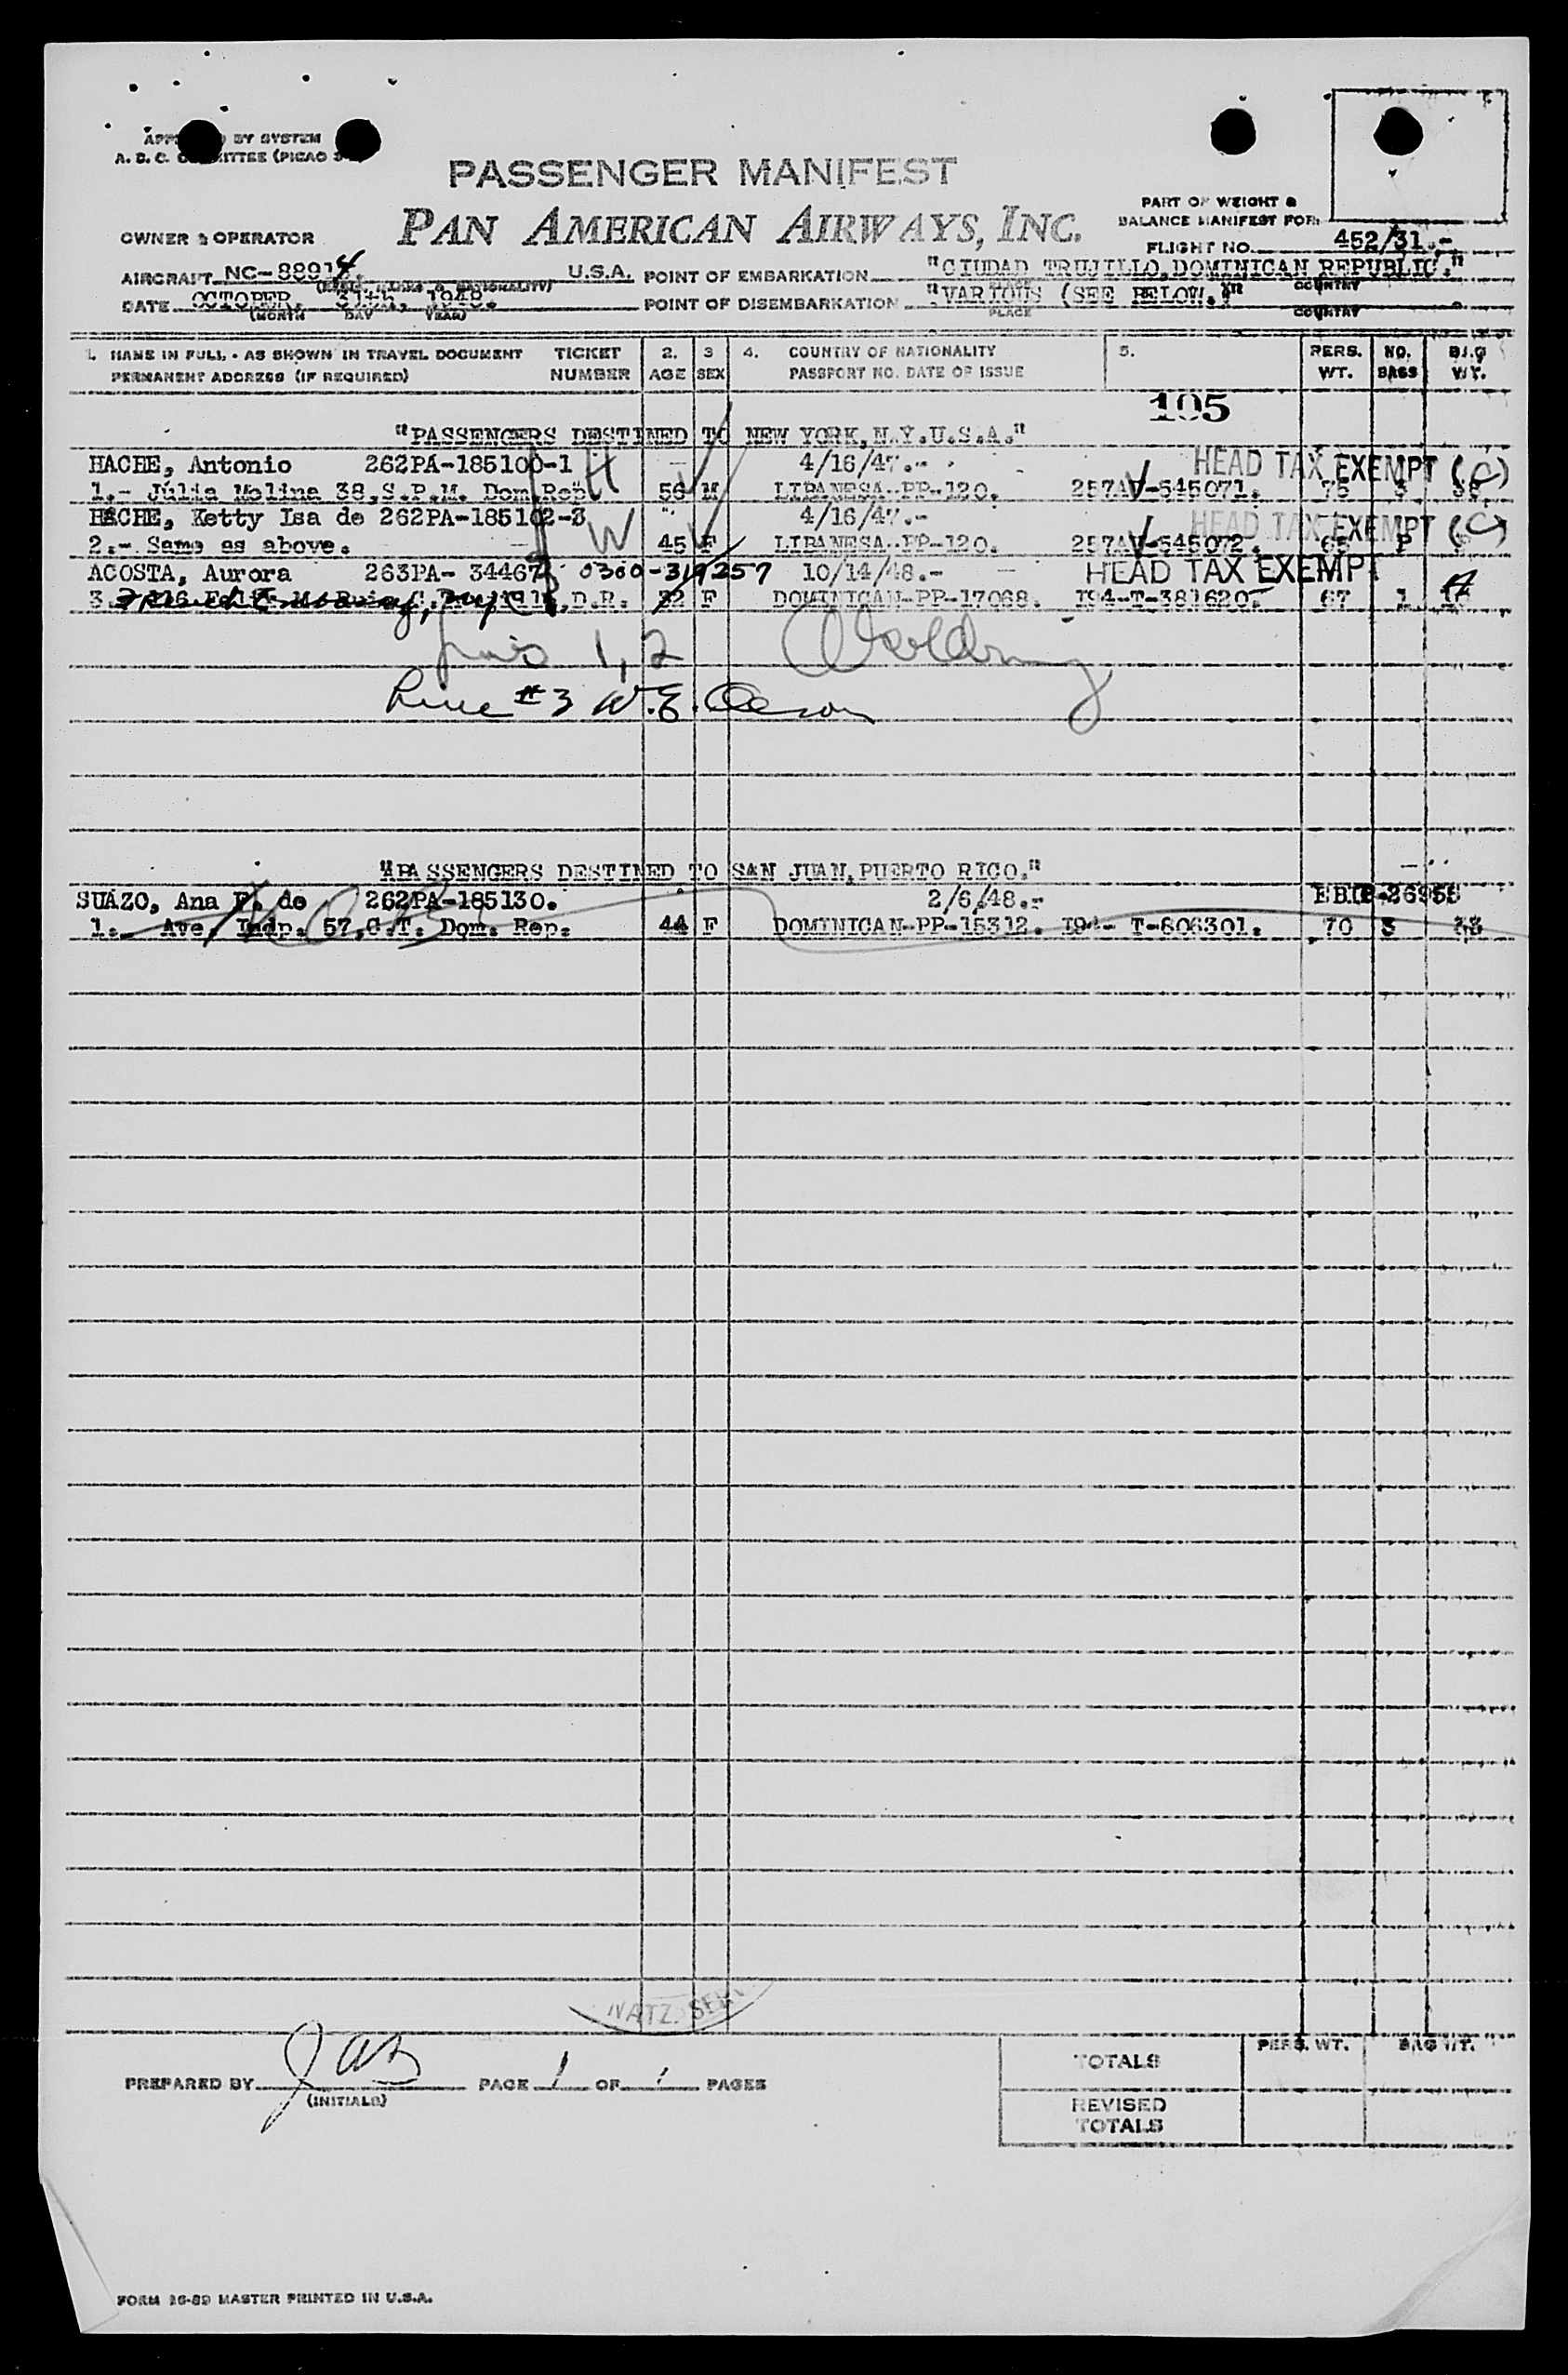 APP BY SYSTEM
A. D. C. COMMITTEE (PICAO
PASSENGER MANIFEST
PAN AMERICAN AIRWAYS, INC.
PART OF WEIGHT &
BALANCE MANIFEST FOR:
OWNER & OPERATOR
FLIGHT NO. 452/31.-
AIRCRAFT NC-88914. U.S.A. POINT OF EMBARKATION "CIUDAD TRUJILLO, DOMINICAN REPUBLIC."
COUNTRY
DATE OCTOBER, 31th, 1948. POINT OF DISEMBARKATION "VARIOUS (SEE BELOW.)"
(MONTH DAY YEAR) PLACE COUNTRY
1. NAME IN FULL - AS SHOWN IN TRAVEL DOCUMENT TICKET 2. 3 4. COUNTRY OF NATIONALITY 5. PERS. NO. BAG
PERMANENT ADDRESS (IF REQUIRED) NUMBER AGE SEX PASSPORT NO. DATE OF ISSUE WT. BAGS WT.
105
"PASSENGERS DESTINED TO NEW YORK, N.Y.U.S.A."
HACHE, Antonio 262PA-185100-1 4/16/47.- HEAD TAX EXEMPT (C)
1.- Júlia Molina 38, S.P.M. Dom.Rep. 56 M LIBANESA-PP-120. 257AV-545071. 75 3 38
HACHE, Ketty Isa de 262PA-185102-3 4/16/47.- HEAD TAX EXEMPT (C)
2.- Same as above. 45 F LIBANESA-PP-120. 257AV-545072. 65 P
ACOSTA, Aurora 263PA-34467 0300-319257 10/14/48.- HEAD TAX EXEMPT
3. D.R. 32 F DOMINICAN-PP-17068. I94-T-381620. 67 1
1, 2
Line #3 W.E.
"PASSENGERS DESTINED TO SAN JUAN, PUERTO RICO."
SUAZO, Ana F. de 262PA-185130. 2/6/48.-
1.- Ave. Indp. 57, C.T. Dom. Rep. 44 F DOMINICAN-PP-15312. I94- T-806301. 70 3 33
NATZ. SER
PREPARED BY JAB PAGE 1 OF 1 PAGES
(INITIALS)
TOTALS PERS. WT. BAG WT.
REVISED
TOTALS
FORM 26-89 MASTER PRINTED IN U.S.A.